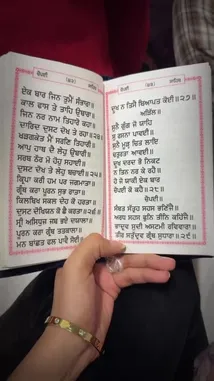 ਚੌਪਈ
ਏਕ ਬਾਰ ਜਿਨ ਤੁਮੈ ਸੰਭਾਰਾ॥
ਕਾਲ ਫਾਸ ਤੇ ਤਾਹਿ ਉਬਾਰਾ॥
ਜਿਨ ਨਰ ਨਾਮ ਤਿਹਾਰੋ ਕਹਾ॥
ਦਾਰਿਦ ਦੁਸਟ ਦੋਖ ਤੇ ਰਹਾ॥੨੪॥
ਖੜਗਕੇਤ ਮੈ ਸਰਣਿ ਤਿਹਾਰੀ॥
ਆਪੁ ਹਾਥ ਦੈ ਲੇਹੁ ਉਬਾਰੀ॥
ਸਰਬ ਠੌਰ ਮੋ ਹੋਹੁ ਸਹਾਈ॥
ਦੁਸਟ ਦੋਖ ਤੇ ਲੇਹੁ ਬਚਾਈ॥੨੫॥
ਕ੍ਰਿਪਾ ਕਰੀ ਹਮ ਪਰ ਜਗਮਾਤਾ॥
ਗ੍ਰੰਥ ਕਰਾ ਪੂਰਨ ਸੁਭ ਰਾਤਾ॥
ਕਿਲਬਿਖ ਸਕਲ ਦੇਹ ਕੋ ਹਰਤਾ॥
ਦੁਸਟ ਦੋਖਿਯਨ ਕੋ ਛੈ ਕਰਤਾ॥੨੬॥
ਸ੍ਰੀ ਅਸਿਧੁਜ ਜਬ ਭਏ ਦਯਾਲਾ॥
ਪੂਰਨ ਕਰਾ ਗ੍ਰੰਥ ਤਤਕਾਲਾ॥
ਮਨ ਬਾਂਛਤ ਫਲ ਪਾਵੈ ਸੋਈ॥
ਦੂਖ ਨ ਤਿਸੈ ਬਿਆਪਤ ਕੋਈ॥੨੭॥
ਅੜਿੱਲ॥
ਸੁਨੈ ਗੁੰਗ ਜੋ ਯਾਹਿ
ਸੁ ਰਸਨਾ ਪਾਵਈ॥
ਸੁਨੈ ਮੂੜ ਚਿਤ ਲਾਇ
ਚਤੁਰਤਾ ਆਵਈ॥
ਦੂਖ ਦਰਦ ਭੌ ਨਿਕਟ
ਨ ਤਿਨ ਨਰ ਕੇ ਰਹੈ॥
ਹੋ ਜੋ ਯਾਕੀ ਏਕ ਬਾਰ
ਚੌਪਈ ਕੋ ਕਹੈ॥੨੮॥
ਚੌਪਈ॥
ਸੰਬਤ ਸੱਤ੍ਰਹ ਸਹਸ ਭਣਿੱਜੈ॥
ਅਰਧ ਸਹਸ ਫੁਨਿ ਤੀਨਿ ਕਹਿੱਜੈ॥
ਭਾਦ੍ਰਵ ਸੁਦੀ ਅਸਟਮੀ ਰਵਿਵਾਰਾ॥
ਤੀਰ ਸਤੁੱਦ੍ਰਵ ਗ੍ਰੰਥ ਸੁਧਾਰਾ॥੨੯॥